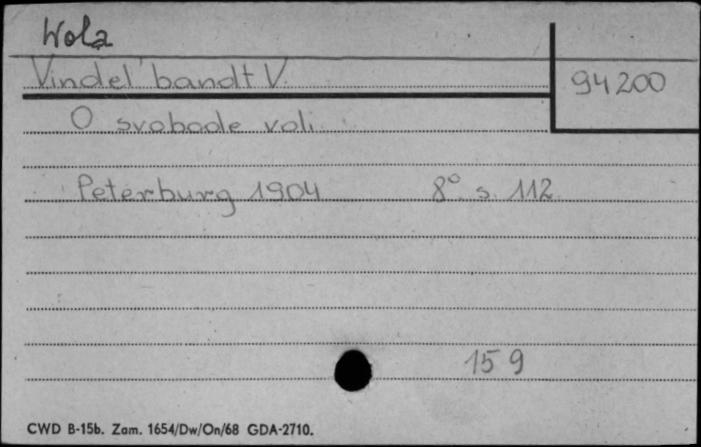 Wola
Vindel'bandt V.
94200
O svobode voli.
Peterburg 1904 8° s. 112
159
CWD B-15b. Zam. 1654/Dw/On/68 GDA-2710.